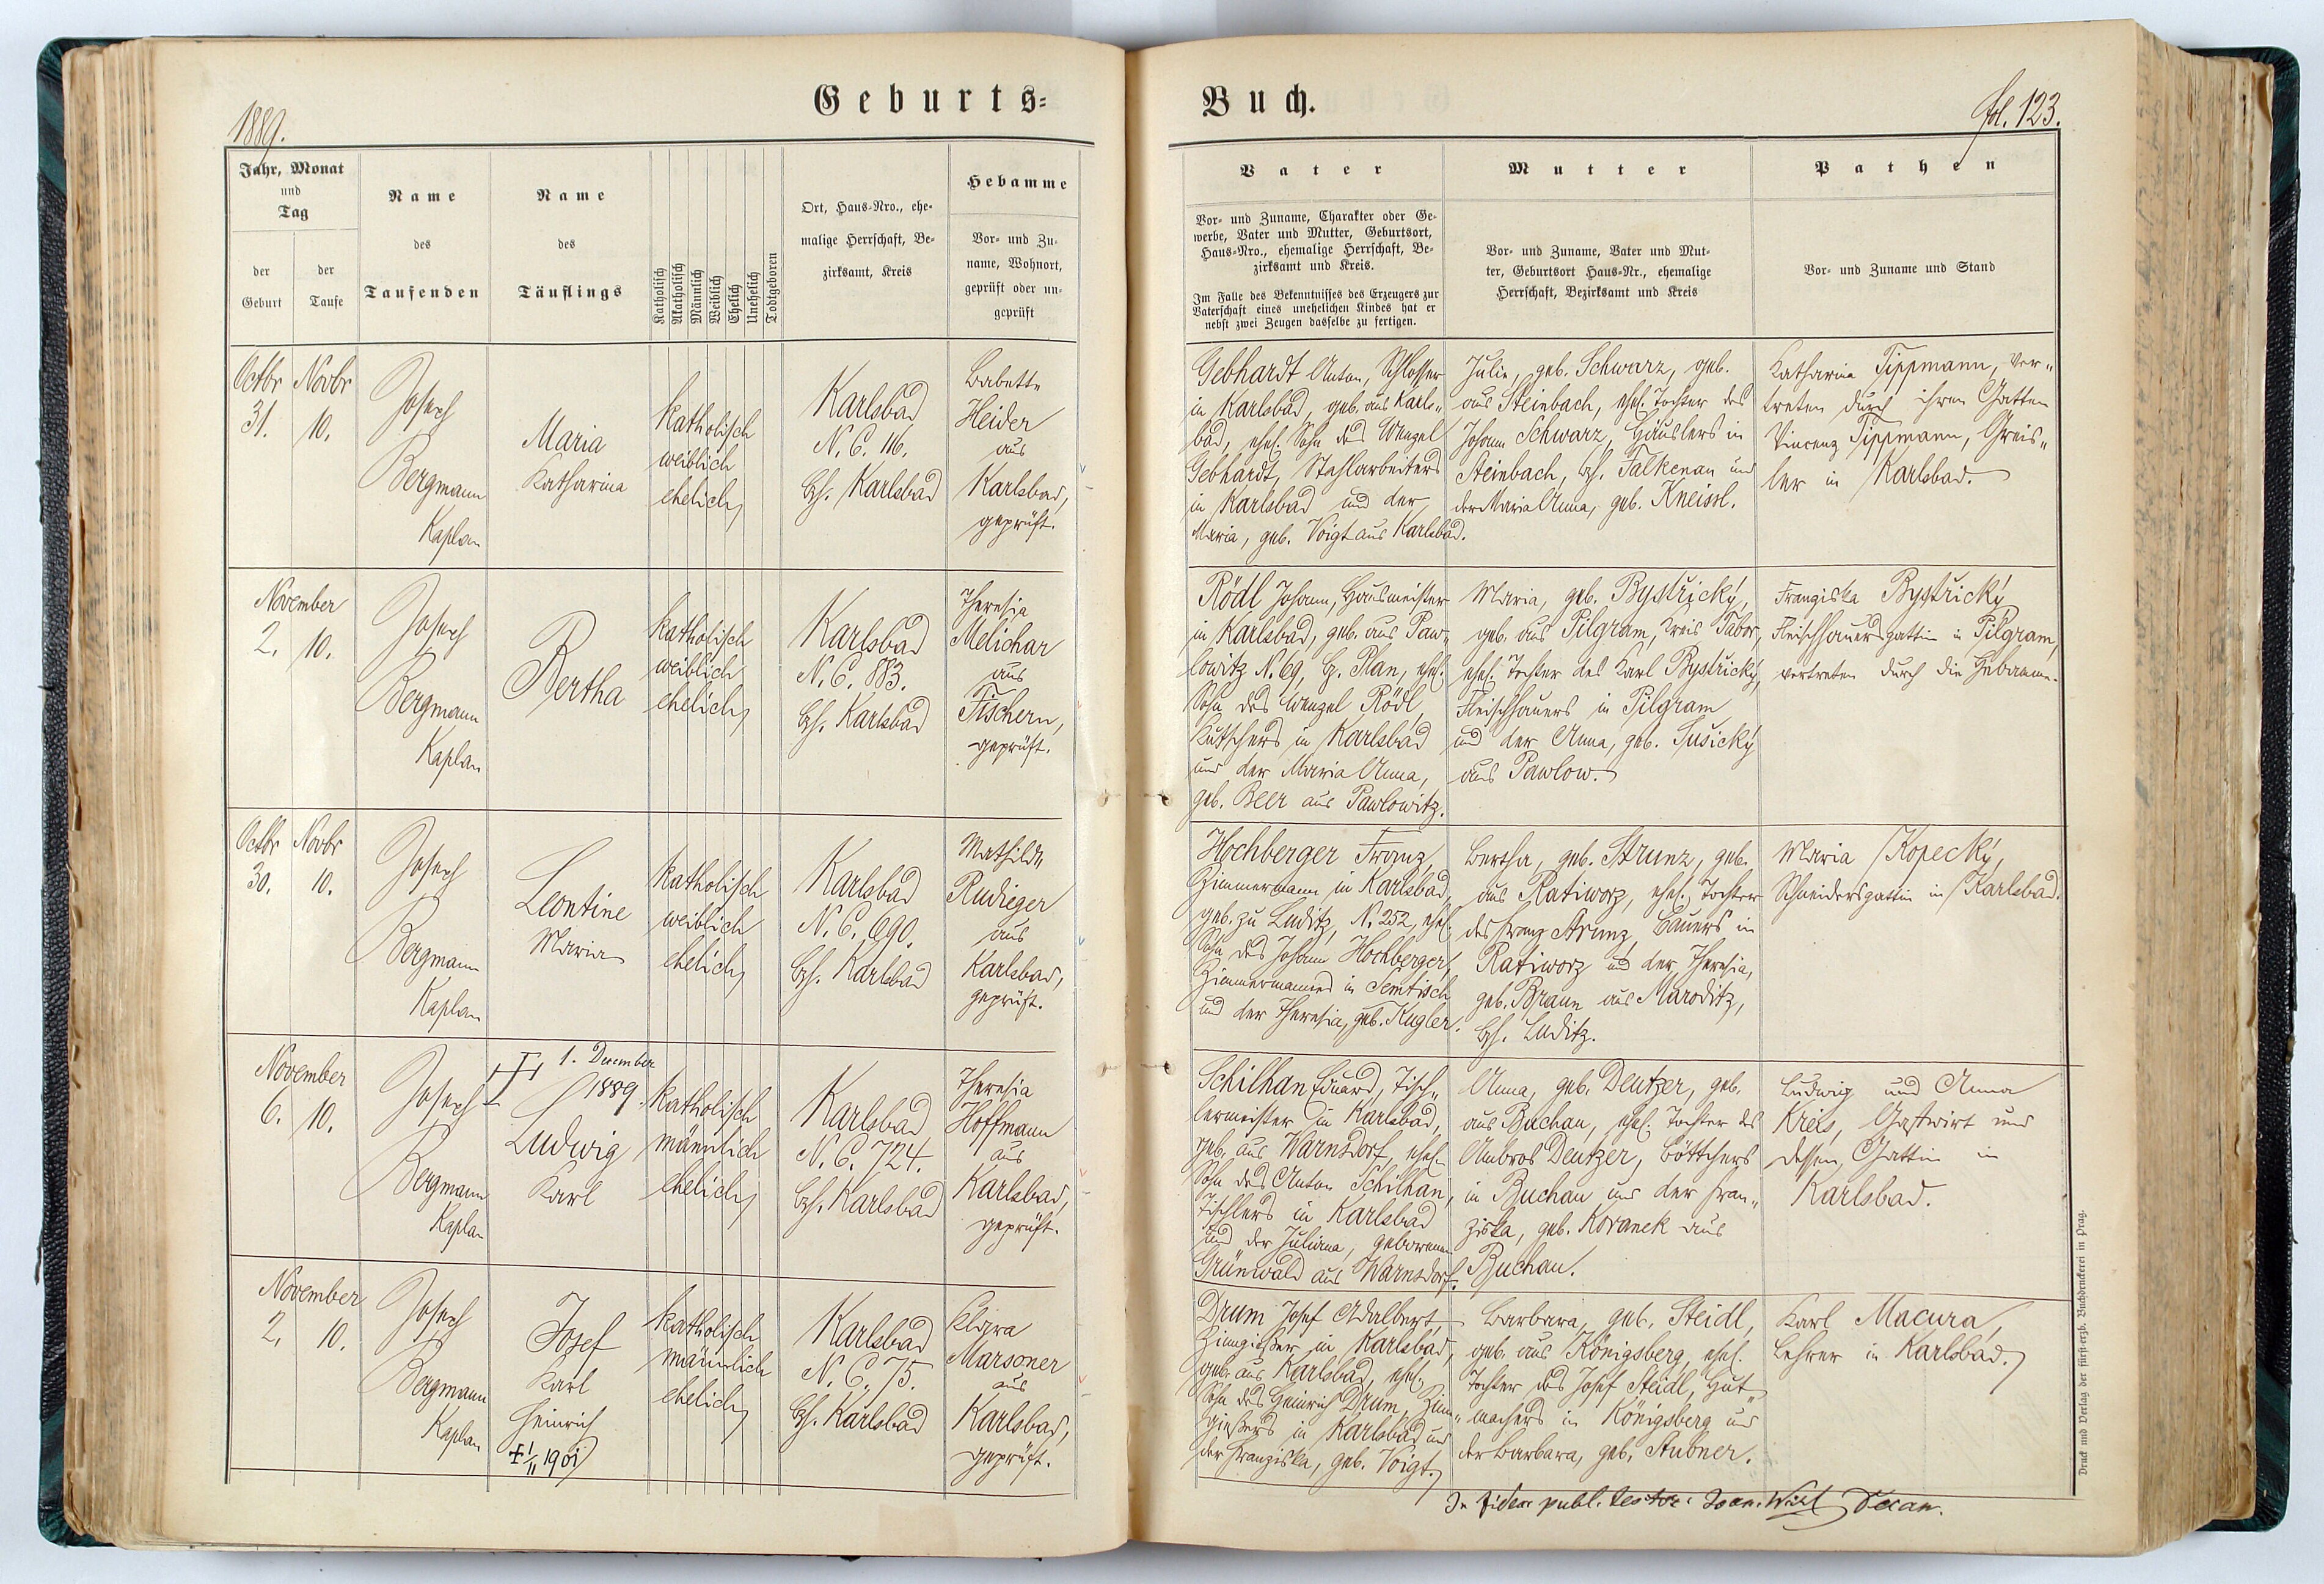 1889.
Geburts-
Buch.
fol. 123.
Jahr, Monat
und
Tag
der
Geburt
der
Taufe
Name
des
Taufenden
Name
des
Täuflings
Katholisch
Akatholisch
Männlich
Weiblich
Ehelich
Unehelich
Todtgeboren
Ort, Haus-Nro., ehe-
malige Herrschaft, Be-
zirksamt, Kreis
Hebamme
Vor- und Zu-
name, Wohnort,
geprüft oder un-
geprüft
Vater
Vor- und Zuname, Charakter oder Ge-
werbe, Vater und Mutter, Geburtsort,
Haus-Nro., ehemalige Herrschaft, Be-
zirksamt und Kreis.
Im Falle des Bekenntnisses des Erzeugers zur
Vaterschaft eines unehelichen Kindes hat er
nebst zwei Zeugen dasselbe zu fertigen.
Mutter
Vor- und Zuname, Vater und Mut-
ter, Geburtsort Haus-Nr., ehemalige
Herrschaft, Bezirksamt und Kreis
Pathen
Vor- und Zuname und Stand
Octbr
31.
Novbr
10.
Josef
Bergmann
Kaplan
Maria
Katharina
katholisch
weiblich
ehelich
Karlsbad
N. C. 116.
Bh. Karlsbad
Babette
Heider
aus
Karlsbad,
geprüft.
Gebhardt Anton, Schlosser
in Karlsbad, geb. aus Karls„
bad, ehel. Sohn des Wenzel
Gebhardt, Stahlarbeiters
in Karlsbad und der
Maria, geb. Voigt aus Karlsbad.
Julie, geb. Schwarz, geb.
aus Steinbach, ehel. Tochter des
Johann Schwarz, Häuslers in
Steinbach, Bh. Falkenau und
der Maria Anna, geb. Kneissl.
Katharina Tippmann, ver„
treten durch ihren Gatten
Vincenz Tippmann, Greis„
ler in Karlsbad.
November
2. 10.
Josef
Bergmann
Kaplan
Bertha
katholisch
weiblich
ehelich
Karlsbad
N. C. 883.
Bh. Karlsbad
Theresia
Melichar
aus
Fischern,
geprüft.
Rödl Johann, Hausmeister
in Karlsbad, geb. aus Paw„
lowitz N. 69, B. Plan, ehel.
Sohn des Wenzel Rödl,
Kutschers in Karlsbad
und der Maria Anna,
geb. Beer aus Pawlowitz.
Maria, geb. Bystřický,
geb. aus Pilgram, Kreis Tabor,
ehel. Tochter des Karl Bystřický,
Fleischhauers in Pilgram
und der Anna, geb. Susický
aus Pawlow.
Franziska Bystřický
Fleischhauersgattin in Pilgram,
vertreten durch die Hebamme.
Octbr
30.
Novbr
10.
Josef
Bergmann
Kaplan
Leontine
Maria
katholisch
weiblich
ehelich
Karlsbad
N. C. 690.
Bh. Karlsbad
Mathilde
Rudieger
aus
Karlsbad,
geprüft.
Hochberger Franz,
Zimmermann in Karlsbad,
geb. zu Luditz, N. 252, ehel.
Sohn des Johann Hochberger,
Zimmermannes in Semtisch
und der Theresia, geb. Kugler.
Bertha, geb. Strunz, geb.
aus Ratiworz, ehel. Tochter
des Franz Strunz, Bauers in
Ratiworz und der Theresia,
geb. Braun aus Maroditz,
Bh. Luditz.
Maria Kopecký,
Schneidersgattin in Karlsbad.
November
6. 10.
Josef
Bergmann
Kaplan
† 1. Dezember
1889.
Ludwig
Karl
katholisch
männlich
ehelich
Karlsbad
N. C. 724.
Bh. Karlsbad
Theresia
Hoffmann
aus
Karlsbad,
geprüft.
Schilhan Eduard, Tisch„
lermeister in Karlsbad,
geb. aus Warnsdorf, ehel.
Sohn des Anton Schilhan,
Tischlers in Karlsbad
und der Juliana, geborenen
Grünwald aus Warnsdorf.
Anna, geb. Deutzer, geb.
aus Buchau, ehel. Tochter des
Ambros Deutzer, Böttchers
in Buchau und der Fran„
ziska, geb. Koranek aus
Buchau.
Ludwig und Anna
Kreis, Gastwirt und
dessen Gattin in
Karlsbad.
November
2. 10.
Josef
Bergmann
Kaplan
Josef
Karl
Heinrich
† 1/II 1901
katholisch
männlich
ehelich
Karlsbad
N. C. 75.
Bh. Karlsbad
Klara
Marsoner
aus
Karlsbad,
geprüft.
Drum Josef Adalbert,
Zinngießer in Karlsbad,
geb. aus Karlsbad, ehel.
Sohn des Heinrich Drum, Zinn„
gießers in Karlsbad und
der Franziska, geb. Voigt.
Barbara, geb. Steidl,
geb. aus Königsberg, ehel.
Tochter des Josef Steidl, Hut„
machers in Königsberg und
der Barbara, geb. Stubner.
Karl Macura,
Lehrer in Karlsbad.
In fidem publ. testor: Joan. Dekan.
Druck und Verlag der fürst-erzb. Buchdruckerei in Prag.